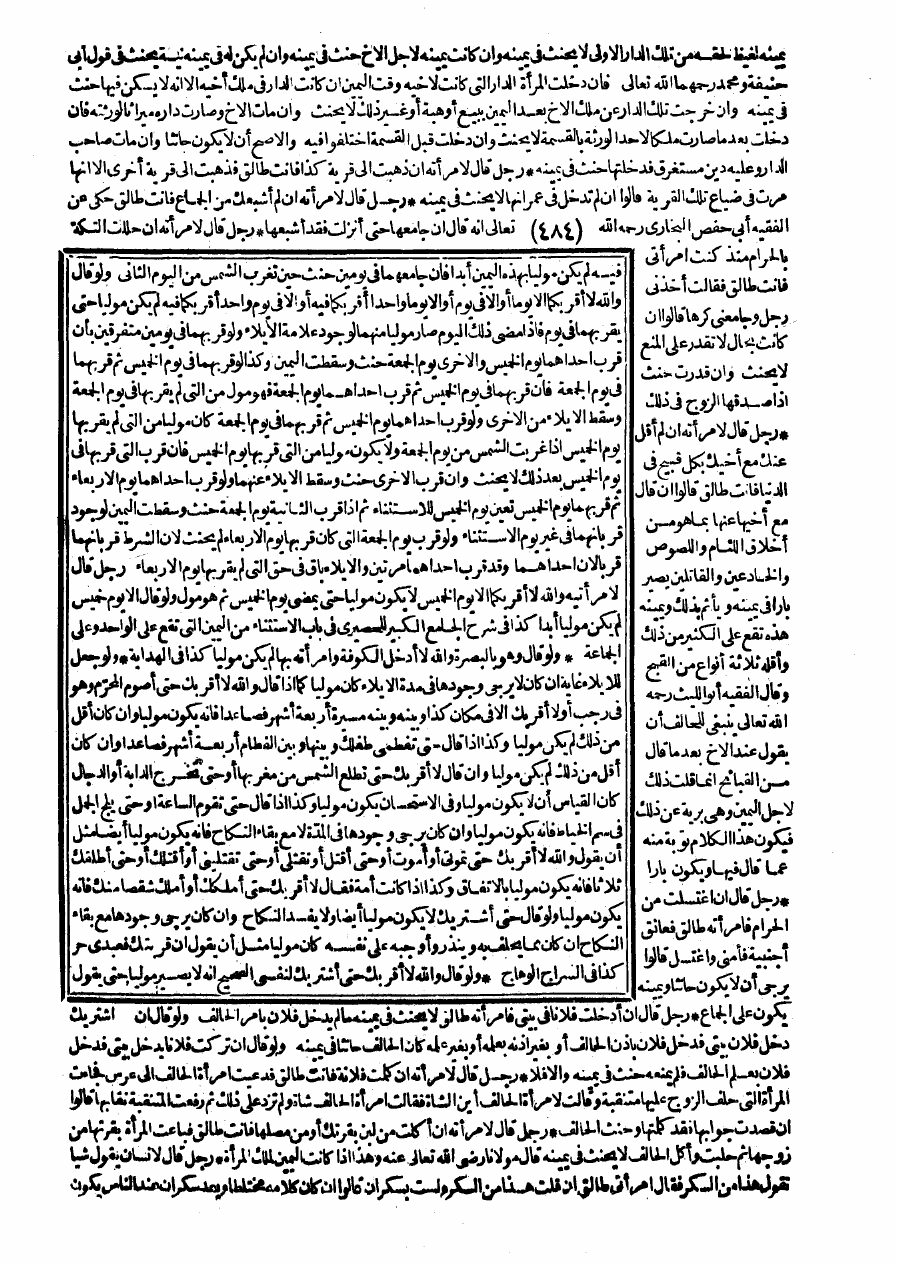 يمينه لغيظ لحقه من تلك الدار الاولى لا يحنث فى يمينه وان كانت يمينه لاجل الاخ حنث فى يمينه وان لم يكن له فى يمينه نية يحنث فى قول أبى
حنيفة ومحمد رحمهما الله تعالى فان دخلت المرأة الدار التى كانت لاخيه وقت اليمين ان كانت الدار فى ملك أخيه الا انه لا يسكن فيها حنث
فى يمينه وان خرجت تلك الدار عن ملك الاخ بعد اليمين ببيع أو هبة أو غير ذلك لا يحنث وان مات الاخ وصارت داره ميراثا لورثته فان
دخلت بعد ما صارت ملكا لاحد الورثة بالقسمة لا يحنث وان دخلت قبل القسمة اختلفوا فيه والاصح أن لا يكون حانثا وان مات صاحب
الدار وعليه دين مستغرق فدخلتها حنث فى يمينه * رجل قال لامرأته ان ذهبت الى قرية كذا فانت طالق فذهبت الى قرية أخرى الا انها
مرت فى ضياع تلك القرية قالوا ان لم تدخل فى عمرانها لا يحنث فى يمينه * رجل قال لامرأته ان لم أشبعك من الجماع فانت طالق حكى عن
الفقيه أبى حفص البخارى رحمه الله (٤٨٤) تعالى انه قال ان جامعها حتى أنزلت فقد أشبعها * رجل قال لامرأته ان حللت التكة
بالحرام منذ كنت امرأتى
فانت طالق فقالت أخذنى
رجل وجامعنى كرها قالوا ان
كانت بحال لا تقدر على المنع
لا يحنث وان قدرت حنث
اذا صدقها الزوج فى ذلك
* رجل قال لامرأته ان لم أقل
عنك مع أخيك بكل قبيح فى
الدنيا فانت طالق قالوا ان قال
مع أخيها عنها بما هو من
أخلاق اللئام واللصوص
والخادعين والقاتلين يصير
بارا فى يمينه ويأثم بذلك ويمينه
هذه تقع على الكثير من ذلك
وأقله ثلاثة أنواع من القبيح
وقال الفقيه أبو الليث رحمه
الله تعالى ينبغى للحالف أن
يقول عند الاخ بعد ما قال
من القبائح انما قلت ذلك
لاجل اليمين وهى برية عن ذلك
فيكون هذا الكلام توبة منه
عما قال فيها ويكون بارا
* رجل قال ان اغتسلت من
الحرام فامرأته طالق فعانق
أجنبية فأمنى واغتسل قالوا
يرجى أن لا يكون حانثا ويمينه
فيسه لم يكن موليا بهذه اليمين أبدا فان جامعهما فى يومين حنث حين تغرب الشمس من اليوم الثانى ولو قال
والله لا أقربكما الا يوما أو الا فى يوم أو الا يوما واحدا أقربكما فيه أو الا فى يوم واحد أقربكما فيه لم يكن موليا حتى
يقربهما فى يوم فاذا مضى ذلك اليوم صار موليا منهما لوجود علامة الايلاء ولو قربهما فى يومين متفرقين بأن
قرب احداهما يوم الخميس والاخرى يوم الجمعة حنث وسقطت اليمين وكذا لو قربهما فى يوم الخميس ثم قربهما
فى يوم الجمعة فان قربهما فى يوم الخميس ثم قرب احداهما يوم الجمعة فهو مول من التى لم يقربها فى يوم الجمعة
وسقط الايلاء من الاخرى ولو قرب احداهما يوم الخميس ثم قربهما فى يوم الجمعة كان موليا من التى لم يقربها
يوم الخميس اذا غربت الشمس من يوم الجمعة ولا يكون موليا من التى قربها يوم الخميس فان قرب التى قربها فى
يوم الخميس بعد ذلك لا يحنث وان قرب الاخرى حنث وسقط الايلاء عنهما ولو قرب احداهما يوم الاربعاء
ثم قربهما يوم الخميس تعين يوم الخميس للاستثناء ثم اذا قرب الثانية يوم الجمعة حنث وسقطت اليمين لوجود
قربانهما فى غير يوم الاستثناء ولو قرب يوم الجمعة التى كان قربها يوم الاربعاء لم يحنث لان الشرط قربانهما
قربالان احداهما وقد قرب احداهما مرتين والايلاء باق فى حق التى لم يقربها يوم الاربعاء رجل قال
لامرأتيه والله لا أقربكما الا يوم الخميس لا يكون موليا حتى يمضى يوم الخميس ثم هو مول ولو قال الا يوم خميس
لم يكن موليا أبدا كذا فى شرح الجامع الكبير للحصيرى فى باب الاستثناء من اليمين التى تقع على الواحد وعلى
الجماعة * ولو قال وهو بالبصرة والله لا أدخل الكوفة وامرأته بها لم يكن موليا كذا فى الهداية * ولو جعل
للايلاء غاية ان كان لا يرجى وجودها فى مدة الايلاء كان موليا كما اذا قال والله لا أقربك حتى أصوم المحرم وهو
فى رجب أو لا أقربك الا فى مكان كذا وبينه وبينه مسيرة أربعة أشهر فصاعدا فانه يكون موليا وان كان أقل
من ذلك لم يكن موليا وكذا اذا قال حتى تفطمى طفلك وبينها وبين الفطام أربعة أشهر فصاعدا وان كان
أقل من ذلك لم يكن موليا وان قال لا أقربك حتى تطلع الشمس من مغربها أو حتى تخرج الدابة أو الدجال
كان القياس أن لا يكون موليا وفى الاستحسان يكون موليا وكذا اذا قال حتى تقوم الساعة أو حتى يلج الجمل
فى سم الخياط فانه يكون موليا وان كان يرجى وجودها فى المدة لا مع بقاء النكاح فانه يكون موليا أيضا مثل
أن يقول والله لا أقربك حتى تموتى أو أموت أو حتى أقتل أو تقتلى أو حتى تقتلينى أو أقتلك أو حتى أطلقك
ثلاثا فانه يكون موليا بالاتفاق وكذا اذا كانت أمة فقال لا أقربك حتى أملكك أو أملك شقصا منك فانه
يكون موليا ولو قال حتى أشتريك لا يكون موليا أيضا ولا يفسد النكاح وان كان يرجى وجودها مع بقاء
النكاح ان كان مما يحلف به وينذر وأوجبه على نفسه كان موليا مثل أن يقول ان قربتك فعبدى حر
كذا فى السراج الوهاج * ولو قال والله لا أقربك حتى أشتريك لنفسى الصحيح انه لا يصير موليا حتى يقول
يكون على الجماع * رجل قال ان أدخلت فلانا فى بيتى فامرأته طالق لا يحنث فى يمينه ما لم يدخل فلان بامر الحالف ولو قال ان اشتريك
دخل فلان بيتى فدخل فلان باذن الحالف أو بغير اذنه بعلمه أو بغير علمه كان الحالف حانثا فى يمينه ولو قال ان تركت فلانا يدخل بيتى فدخل
فلان بعلم الحالف فلم يمنعه حنث فى يمينه والا فلا * رجل قال لامرأته ان كلمت فلانة فانت طالق فدعيت امرأة الحالف الى عرس فجاءت
المرأة التى حلف الزوج عليها متنقبة وقالت لامرأة الحالف أين الشاة فقالت امرأة الحالف شاة ولم ترد على ذلك ثم رفعت المتنقبة نقابها قالوا
ان قصدت جوابها فقد كلمتها وحنث الحالف * رجل قال لامرأته ان أكلت من لبن بقرتك أو من مصلها فانت طالق فباعت المرأة بقرتها من
زوجها ثم حلبت وأكل الحالف لا يحنث فى يمينه قال مولانا رضى الله تعالى عنه وهذا اذا كانت اليمين لملك المرأة * رجل قال لانسان يقول شيا
تقول هذا من السكر فقال امرأتى طالق ان قلت هذا من السكر ولست بسكران قالوا ان كان كلامه مختلطا ويعد سكران عند الناس يكون